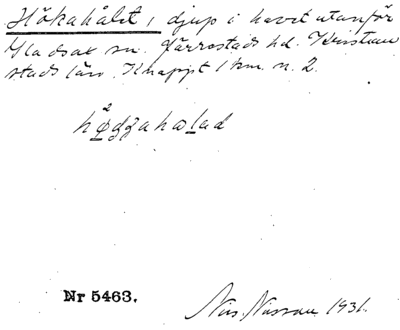 Hökahålet, djup i havet utanför
Vladsax sn. Järrestads hd. Kristian
stads län. Knappt 1 km. n. 2.
Nr 5463.
Nils Nilsson 1931.